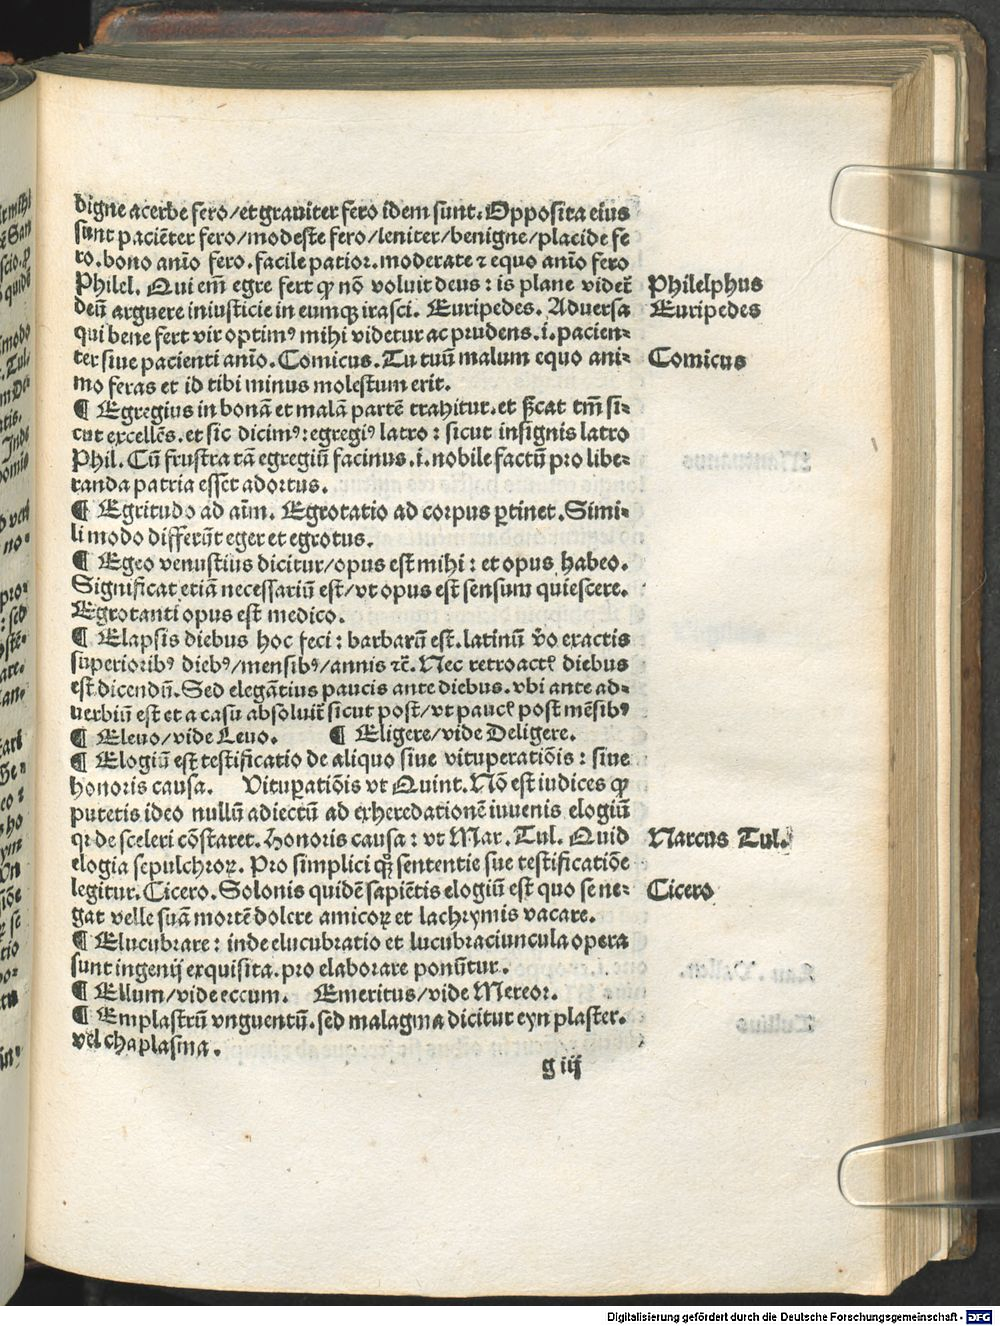 digne acerbe fero/et grauiter fero idem sunt. Opposita eius
sunt paciēter fero/modeste fero/leniter/benigne/placide fe
ro. bono anīo fero. facile patior. moderate ⁊ equo anīo fero
Philel. Qui em̄ egre fert ꝙ nō voluit deus : is plane videt̄ Philelphus
deū arguere iniusticie in eumqꝫ irasci. Euripedes. Aduersa Euripedes
qui bene fert vir optimꝰ mihi videtur ac prudens. i. pacien⸗
ter siue pacienti anīo. Comicus. Tu tuū malum equo ani⸗ Comicus
mo feras et id tibi minus molestum erit.
¶ Egregius in bonā et malā partē trahitur. et sꝰcat tm̄ si⸗
cut excellēs. et sic dicimꝰ: egregiꝰ latro : sicut insignis latro
Phil. Cū frustra tā egregiū facinus .i. nobile factū pro libe⸗
randa patria esset adortus.
¶ Egritudo ad aīm. Egrotatio ad corpus ꝑtinet. Simi⸗
li modo differūt eger et egrotus.
¶ Egeo venustius dicitur/opus est mihi : et opus habeo.
Significat etiā necessariū est/vt opus est sensum quiescere.
Egrotanti opus est medico.
¶ Elapsis diebus hoc feci : barbarū est. latinū v̄o exactis
superioribꝰ diebꝰ/mensibꝰ/annis ⁊c̄. Nec retroactꝭ diebus
est dicendū. Sed elegātius paucis ante diebus. vbi ante ad⸗
uerbiū est et a casu absoluit̄ sicut post/vt paucꝭ post mēsibꝰ
¶ Eleuo/vide Leuo. ¶ Eligere/vide Deligere.
¶ Elogiū est testificatio de aliquo siue vituperatiōis : siue
honoris causa. Vituꝑatiōis vt Quint. Nō est iudices ꝙ
putetis ideo nullū adiectū ad exheredationē iuuenis elogiū
qꝛ de sceleri cōstaret. Honoris causa : vt Mar. Tul. Quid Narcus Tul.
elogia sepulchroꝝ. Pro simplici qꝫ sententie sue testificatiōe
legitur. Cicero. Solonis quidē sapiētis elogiū est quo se ne⸗ Cicero
gat velle suā mortē dolere amicoꝝ et lachrymis vacare.
¶ Elucubrare : inde elucubratio et lucubraciuncula opera
sunt ingenij exquisita. pro elaborare ponūtur.
¶ Ellum/vide eccum. Emeritus/vide Mereor.
¶ Emplastrū vnguentū. sed malagma dicitur eyn plaster.
vel chaplasma.
g iij
Digitalisierung gefördert durch die Deutsche Forschungsgemeinschaft - DFG